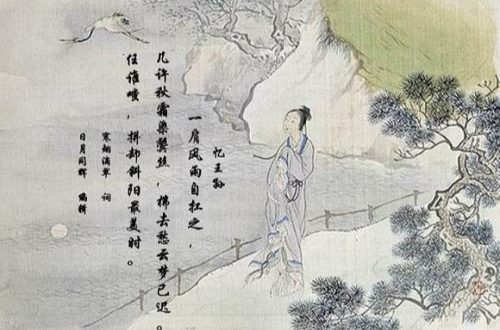 忆王孙
一肩风雨自扛之，
几许秋霜染鬓丝，拂去愁云梦已迟。
任谁嗤，拼却斜阳最美时。
寒烟滴翠 词
日月同辉 编辑